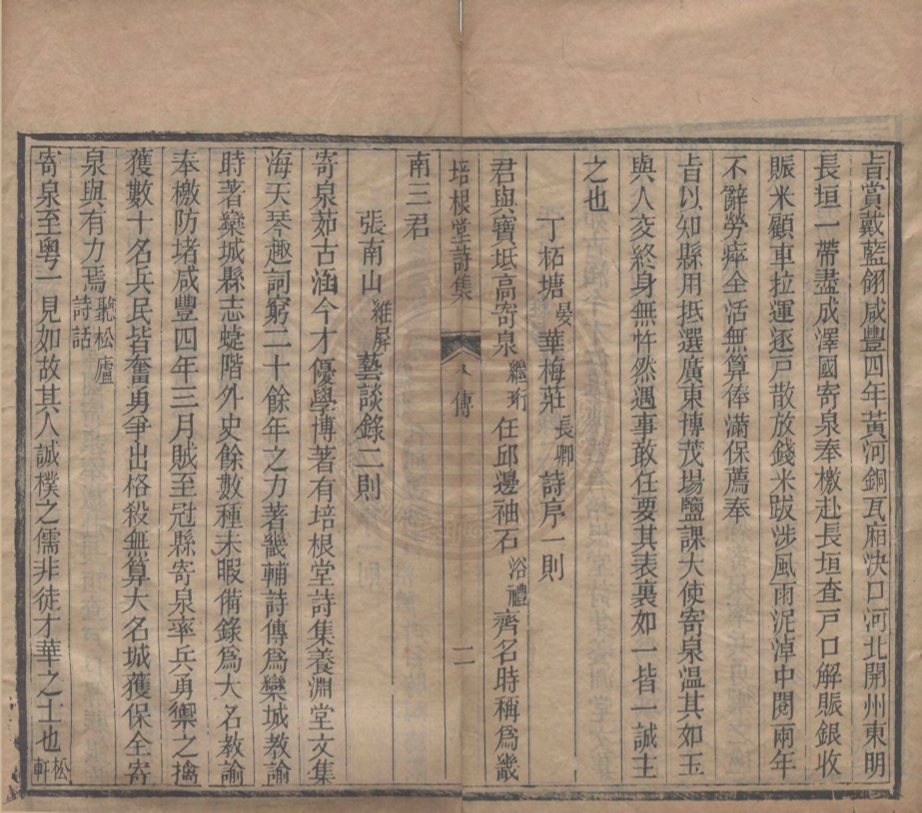 旨賞戴藍翎咸豐四年黃河銅瓦廂決口河北開州東明
長垣一帶盡成澤國寄泉奉檄赴長垣查戶口解賑銀收
賑米顧車拉運逐戶散放錢米跋涉風雨泥淖中閱兩年
不辭勞瘁全活無算俸滿保薦奉
旨以知縣用抵選廣東博茂場鹽課大使寄泉溫其如玉
與人交終身無忤然遇事敢任要其表裏如一皆一誠主
之也
丁柘塘晏華梅莊長卿詩序一則
君與寶坻高寄泉繼珩任邱邊袖石浴禮齊名時稱爲畿
培根堂詩集 傳 二
南三君
張南山維屏藝談錄二則
寄泉茹古涵今才優學博著有培根堂詩集養淵堂文集
海天琴趣詞窮二十餘年之力著畿輔詩傳爲欒城教諭
時著欒城縣志蜨階外史餘數種未暇備錄爲大名教諭
奉檄防堵咸豐四年三月賊至冠縣寄泉率兵勇禦之擒
獲數十名兵民皆奮勇爭出格殺無算大名城獲保全寄
泉與有力焉聽松廬詩話
寄泉至粵一見如故其人誠樸之儒非徒才華之士也松軒